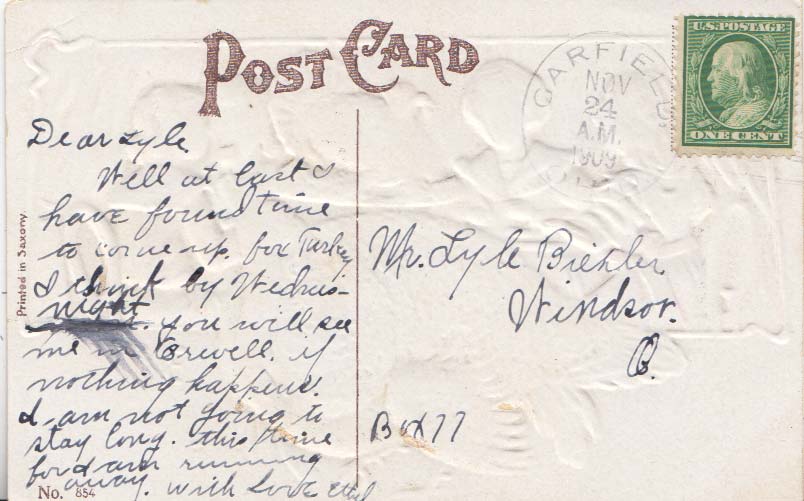 POST CARD
U.S. POSTAGE
ONE CENT
GARFIELD,
NOV
24
A.M.
1909
Printed in Saxony
Dear Lyle
Well at last I
have found time
to come up. for Turkey
I think by Wednes-
night
you will see
me in Orwell. if
nothing happens.
I am not going to
stay long. this time
for I am running
away. with Love Ethel
No. 854
Mr. Lyle Biehler
Windsor.
O.
Box 77